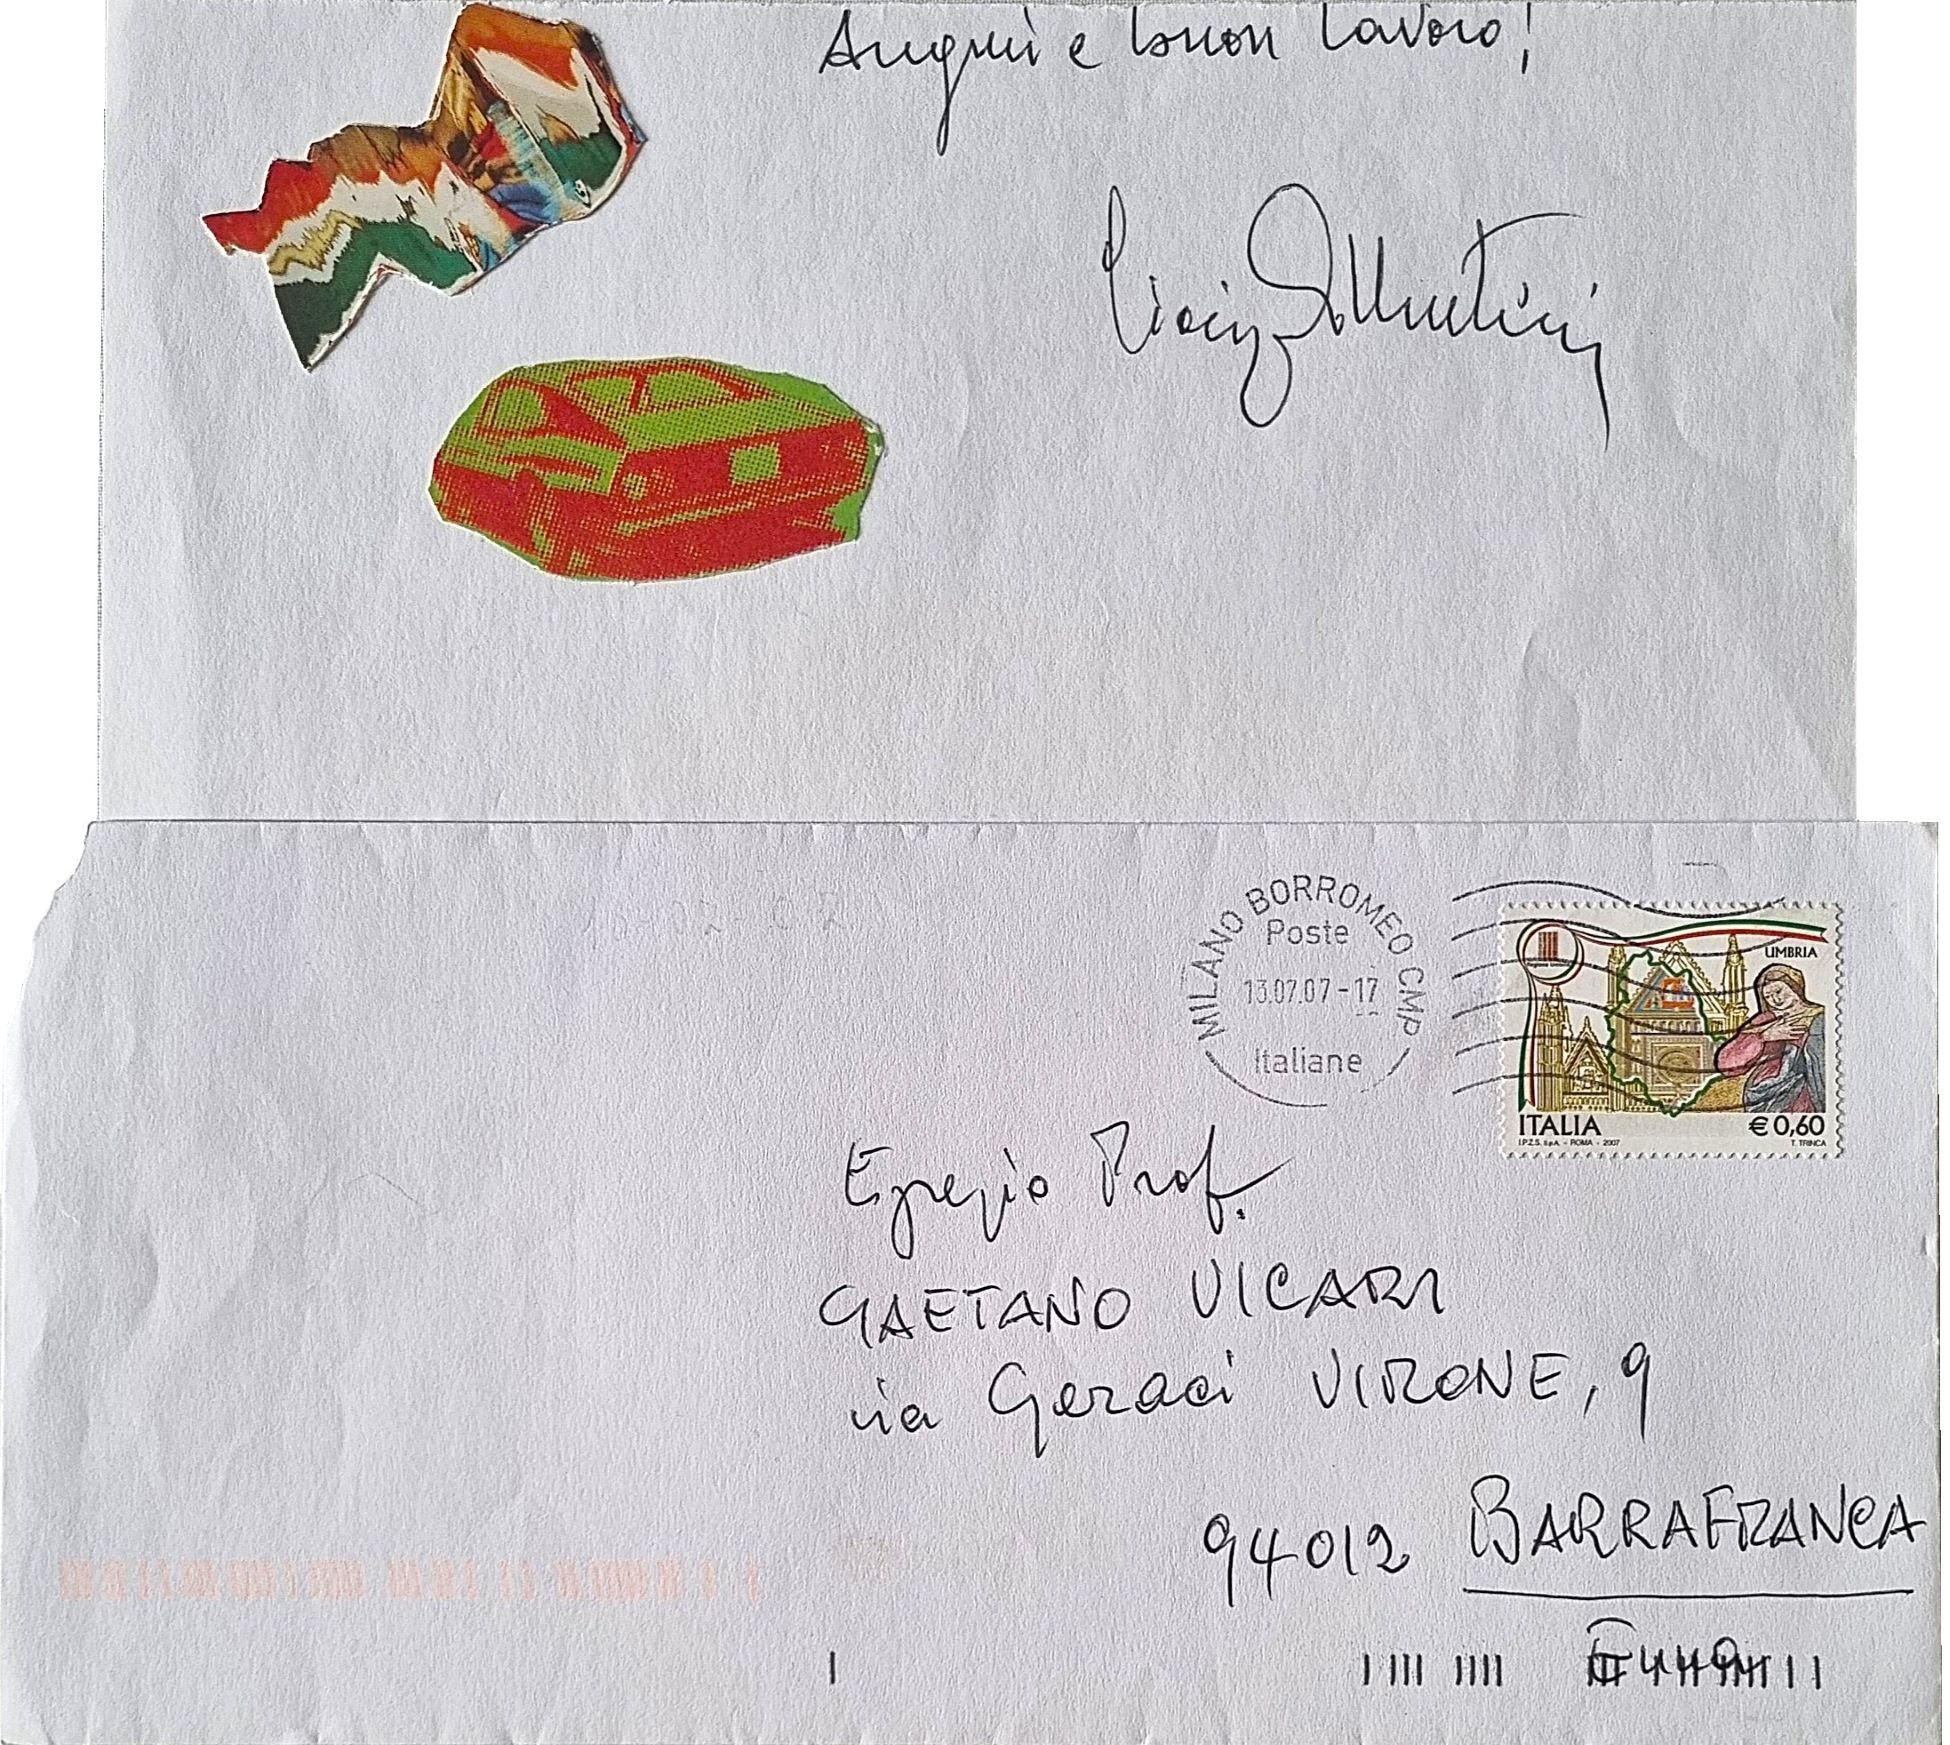 Auguri e buon lavoro!
MILANO BORROMEO CMP
Poste
13.07.07-17
Italiane
UMBRIA
ITALIA
€ 0,60
I.P.Z.S. S.p.A. - ROMA - 2007
T. TRINCA
Egregio Prof.
GAETANO VICARI
via Geraci VIRONE, 9
94012 BARRAFRANCA
Enna